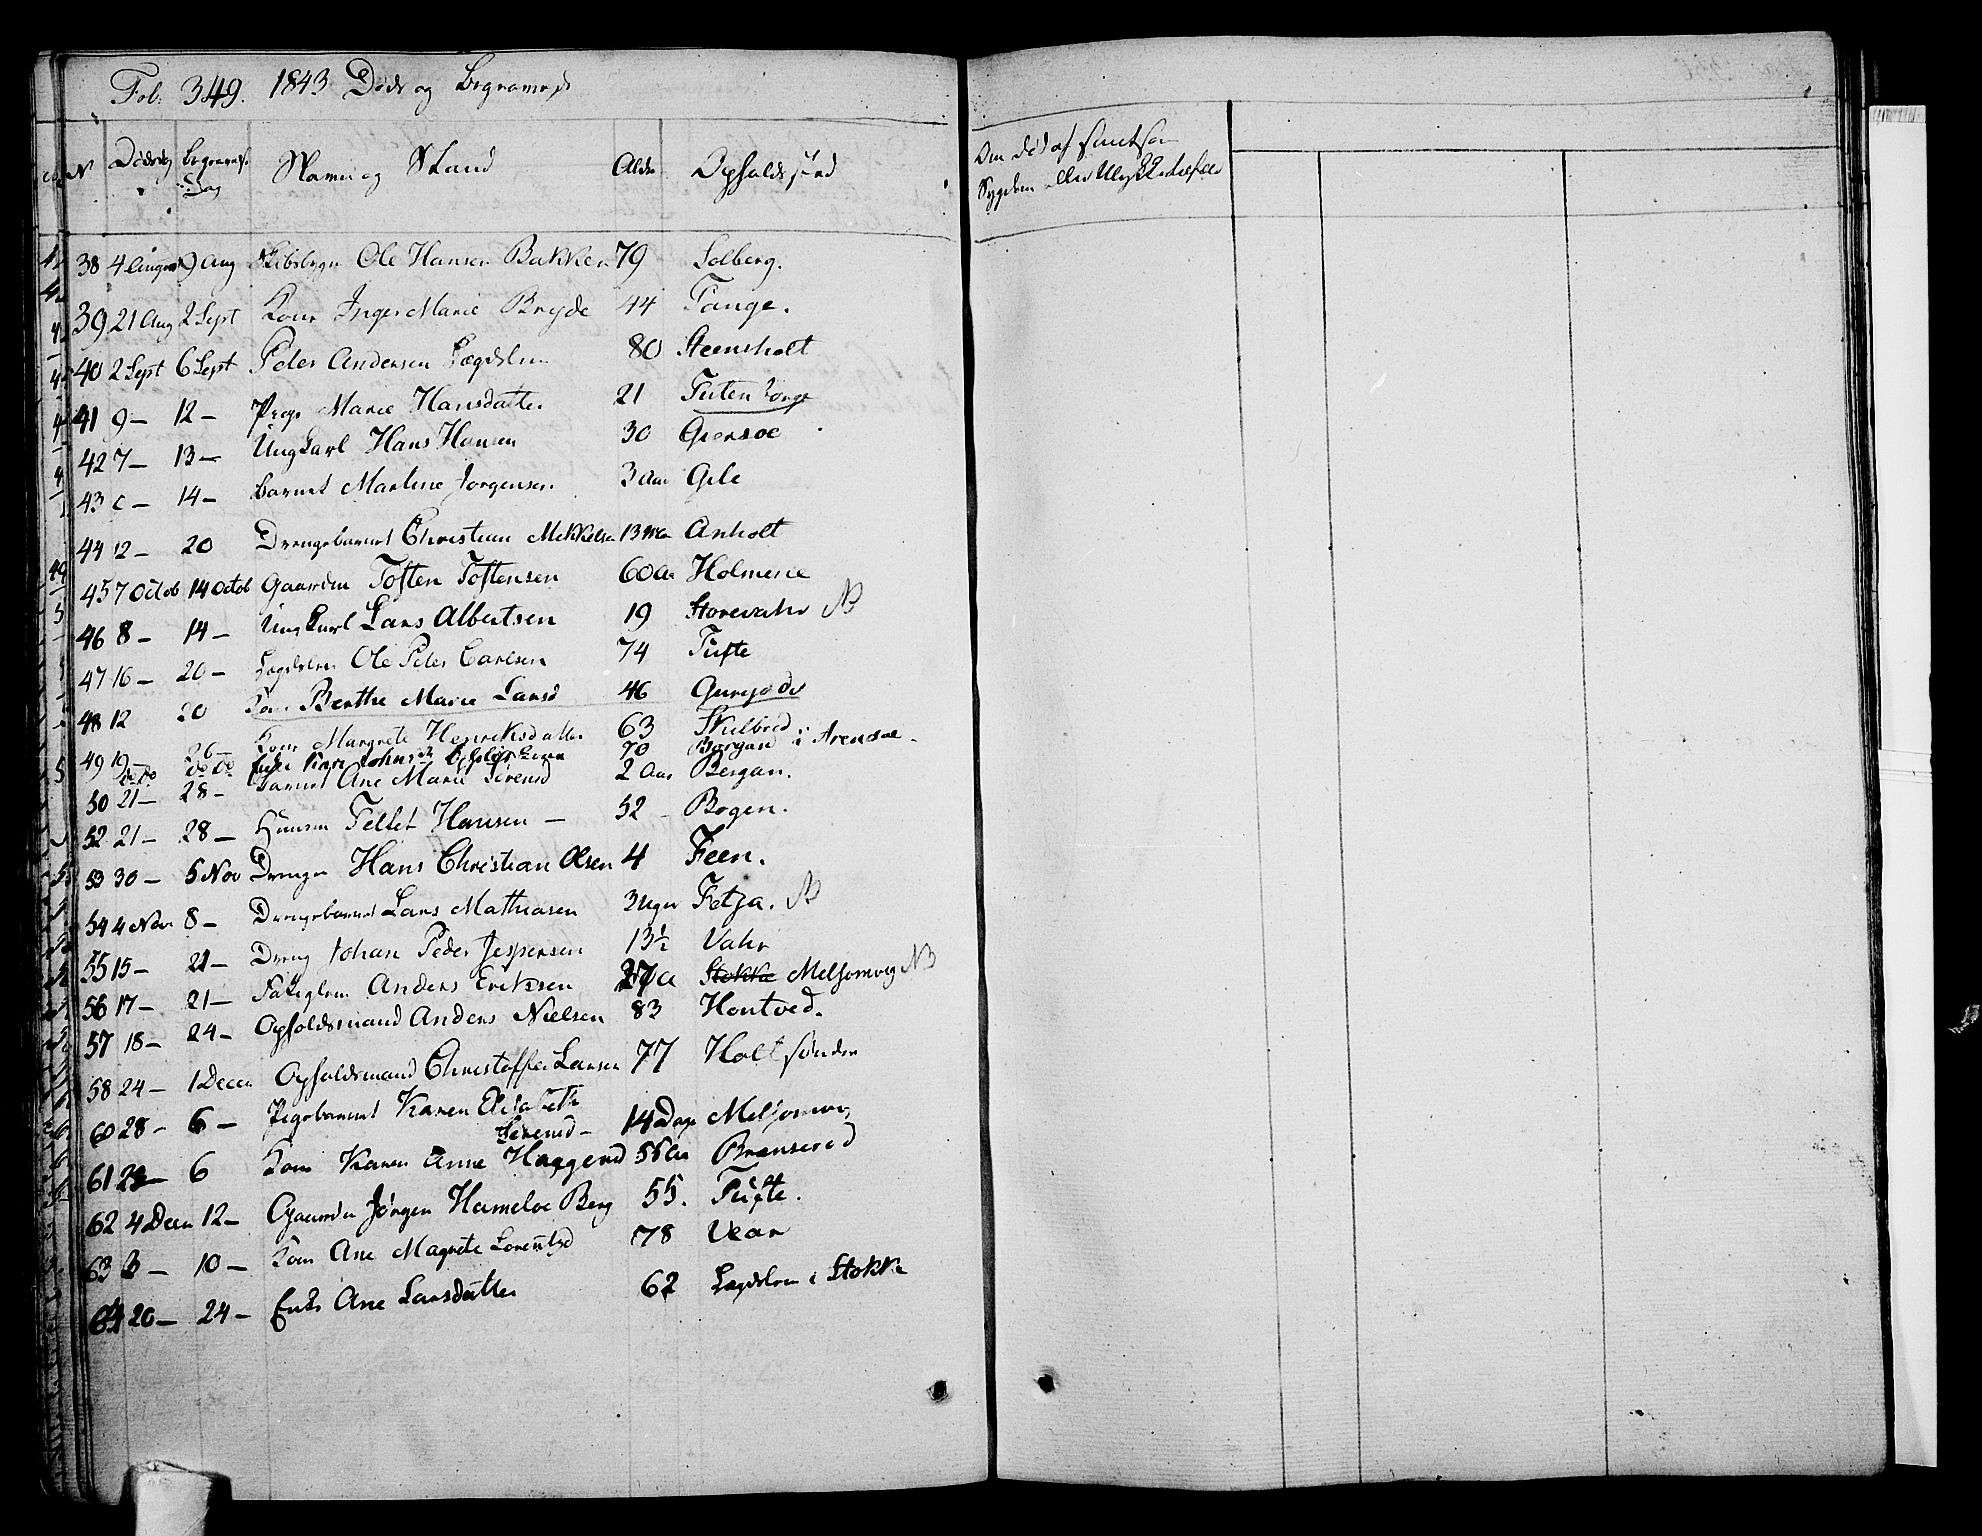 Fol: 349. 1843 Døde og Begravede
N Dødsdag Begravels. Dag Navn og Stand Alder Opholdssted
Om død af smitsom
Sygdom eller Ulykkestilfælde
38 4 August 9 Aug Ole Hansen Bakken 79 Solberg.
39 21 Aug 2 Sept Kone Inger Marie Bryde 44 Tange.
40 2 Sept 6 Sept Peder Andersen Lægdslem 80 Steensholt
41 9 - 12 - Pige Marie Hansdatter 21
42 7 - 13 - Ungkarl Hans Hansen 30 Grensoe
43 14 - Barnet Marline Jorgensen 3 Aar Gile
44 12 - 20 Drengebarnet Christian Mikkelsen 13 Anholt
45 7 Octob 14 Octob Gaardm Tosten Tostensen 60 a Holmene
46 8 - 14 - Ungkarl Lars Albertsen 19 Storevahr NB
47 16 - 20 - Lægdslem Ole Peder Carlsen 74 Tufte
48 12 20 Kone Berthe Marie Larsd 46
49 19 - 26 - Kone Margrete Henriksdatter 63 Skulbred
do do do do Enke Kari 70 Bergan i Arendal.
50 21 - 28 - Barnet Ane Marie Sørensd 2 Aar Bergan.
52 21 - 28 - Huusm Tellef Hansen - 52 - Bogen.
53 30 - 5 Nov Drengen Hans Christian Olsen 4 Feen.
54 4 Nov 8 - Drengebarnet Lars Mathiasen 3 Uger Fetja. NB
55 15 - 21 - Dreng Johan Peder Jespersen 13½ Vahr
56 17 - 21 - Fattiglem Anders Eriksen 27 a Stokke Melsomvig NB
57 18 - 24 - Opholdsmand Anders Nielsen 83 Hontved.
58 24 - 1 Decem Opholdsmand Christoffer Larsen 77 Holt søndre
60 28 - 6 - Pigebarnet Karen Elisabeth
Sørensd - 14 Dage Melsomvig
61 6 Kone Karen Anne Haggensd 55 Aar Brunserød
62 4 Decm 12 - Gaardm Jørgen Hameloe Berg 55. Tufte.
63 3 - 10 - Kone Ane Magrete Lorentzd 78 Vear
64 20 - 24 - Enke Ane Larsdatter 62 Lægdslem i Stokke